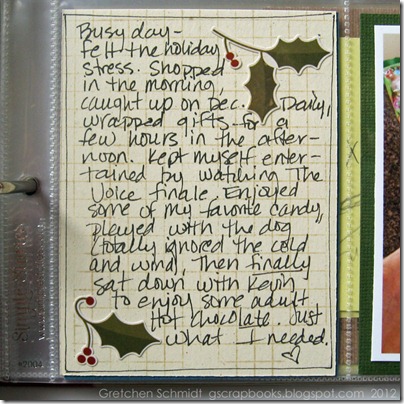 Busy day –
felt the holiday
stress. Shopped
in the morning,
caught up on Dec. Daily,
wrapped gifts for a
few hours in the after-
noon. Kept myself enter-
tained by watching The
Voice finale. Enjoyed
some of my favorite candy,
played with the dog
(totally ignored the cold
and wind). Then finally
sat down with Kevin
to enjoy some adult
Hot Chocolate. Just
what I needed.
©2009
Gretchen Schmidt gscrapbooks.blogspot.com 2012